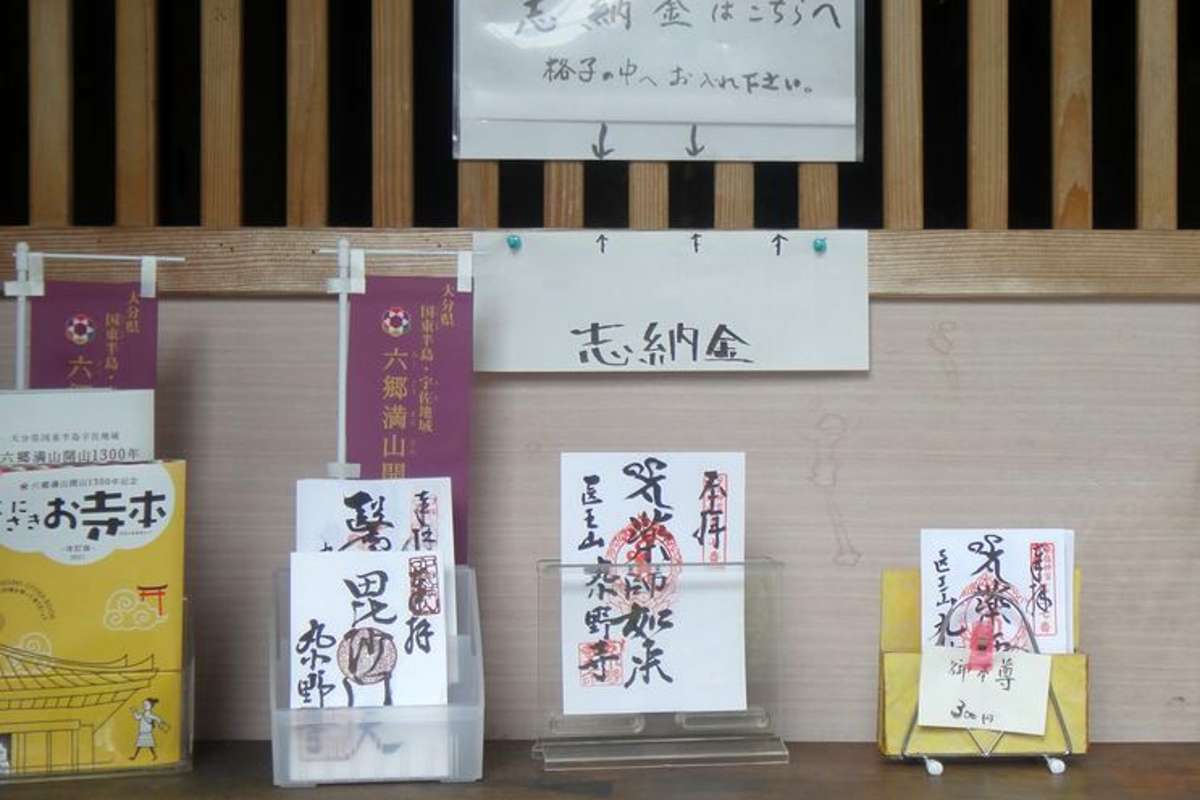 志納金はこちらへ
格子の中へお入れ下さい。
↓ ↓
↑ ↑ ↑
志納金
大分県
国東半島・
六
大分県
国東半島・宇佐地域
六郷満山開
大分県国東半島宇佐地域
六郷満山開山1300年
六郷満山開山1300年記念
くにさきお寺本
-改訂版-
醫
奉拝
毘沙門
奉拝
丸小野
奉拝
薬師如来
医王山
丸小野寺
奉拝
薬師
医王山
御本尊
300円